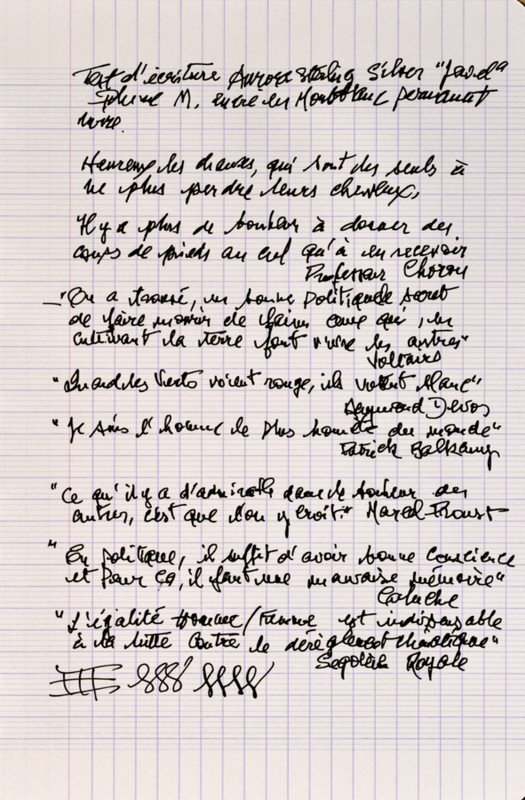 Test d'écriture Aurora Sterling Silver "
plume M, encre Montblanc permanent
noire.
Heureux les chauves, qui sont les seuls à
ne plus perdre leurs cheveux,
Il y a plus de bonheur à donner des
coups de pieds au cul qu'à en recevoir
Professeur Choron
"On a trouvé, en bonne politique le secret
de faire mourir de faim ceux qui, en
cultivant la terre font vivre les autres"
Voltaire
"Quand les Verts voient rouge, ils votent blanc"
Raymond Devos
"Je suis l'homme le plus honnête du monde"
Patrick Balkany
"Ce qu'il y a d'admirable dans le bonheur des
autres, c'est que l'on y croit." Marcel Proust
"En politique, il suffit d'avoir bonne conscience
et pour ça, il faut une mauvaise mémoire"
Coluche
"L'égalité homme/femme est indispensable
à la lutte contre le dérèglement climatique"
Ségolène Royale